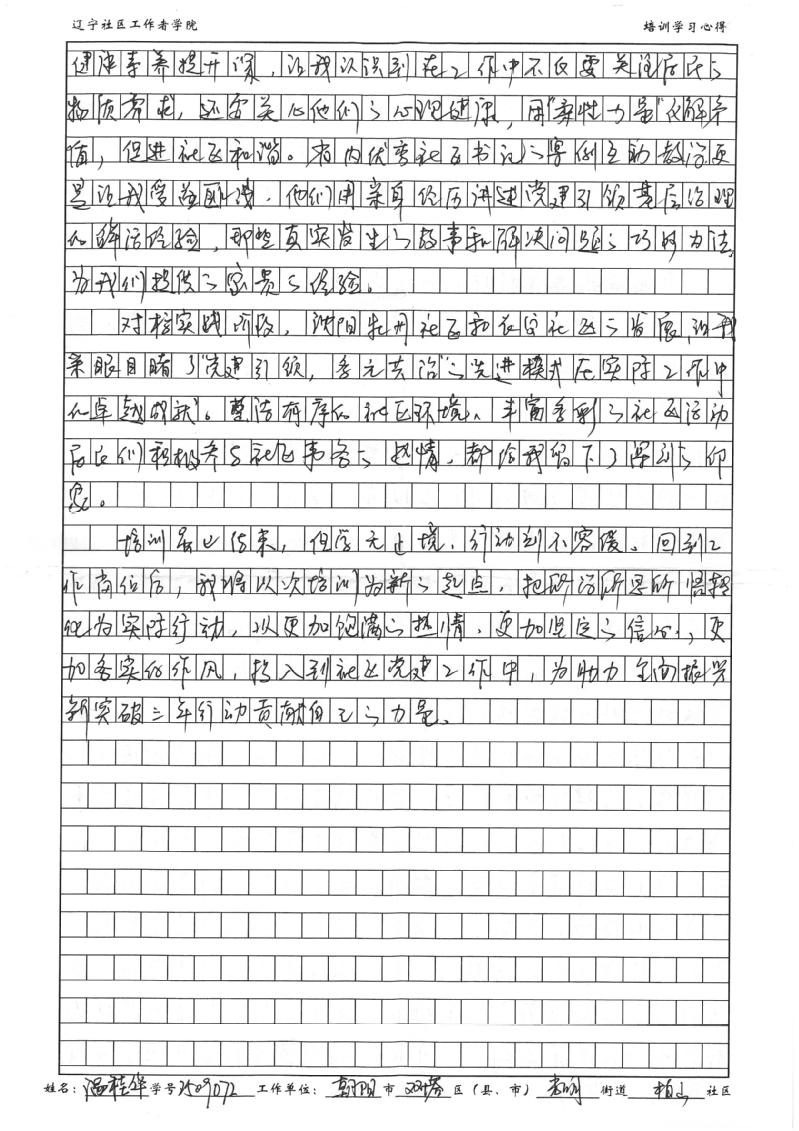 辽宁社区工作者学院 培训学习心得
健康素养提升课，让我认识到在工作中不仅要关注居民的
物质需求，还需关心他们的心理健康，用“柔性力量”化解
值，促进社区和谐。省内优秀社区书记的案例互动教学更
是让我受益匪浅，他们用亲身经历讲述党建引领基层治理
的鲜活经验，那些真实发生的故事和解决问题的巧妙方法，
为我们提供了宝贵的经验。
对标实践阶段，沈阳牡丹社区和长安社区的发展，让我
亲眼目睹了“党建引领，多元共治”的先进模式在实际工作中
的卓越成就。整洁有序的社区环境、丰富多彩的社区活动
居民们积极参与社区事务的热情，都给我留下了深刻的印
象。
培训虽已结束，但学无止境，行动刻不容缓。回到工
作岗位后，我将以此次培训为新的起点，把所学所思所悟转
化为实际行动，以更加饱满的热情、更加坚定的信心，更
加务实的作风，投入到社区党建工作中，为助力全面振兴
新突破三年行动贡献自己的力量。
姓名：温桂华 学号2509072 工作单位：朝阳 市 双塔 区（县、市） 光明 街道 柏山 社区